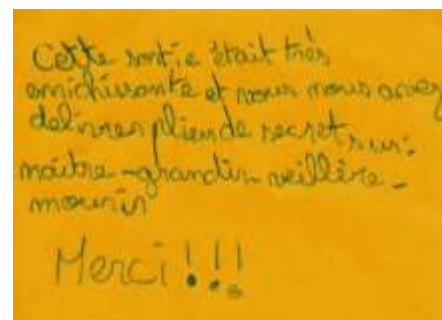 Cette sortie était très
enrichissante et vous nous avez
délivres plien de secret sur:
maitre-grandir-veillère-
mourir
Merci!!!